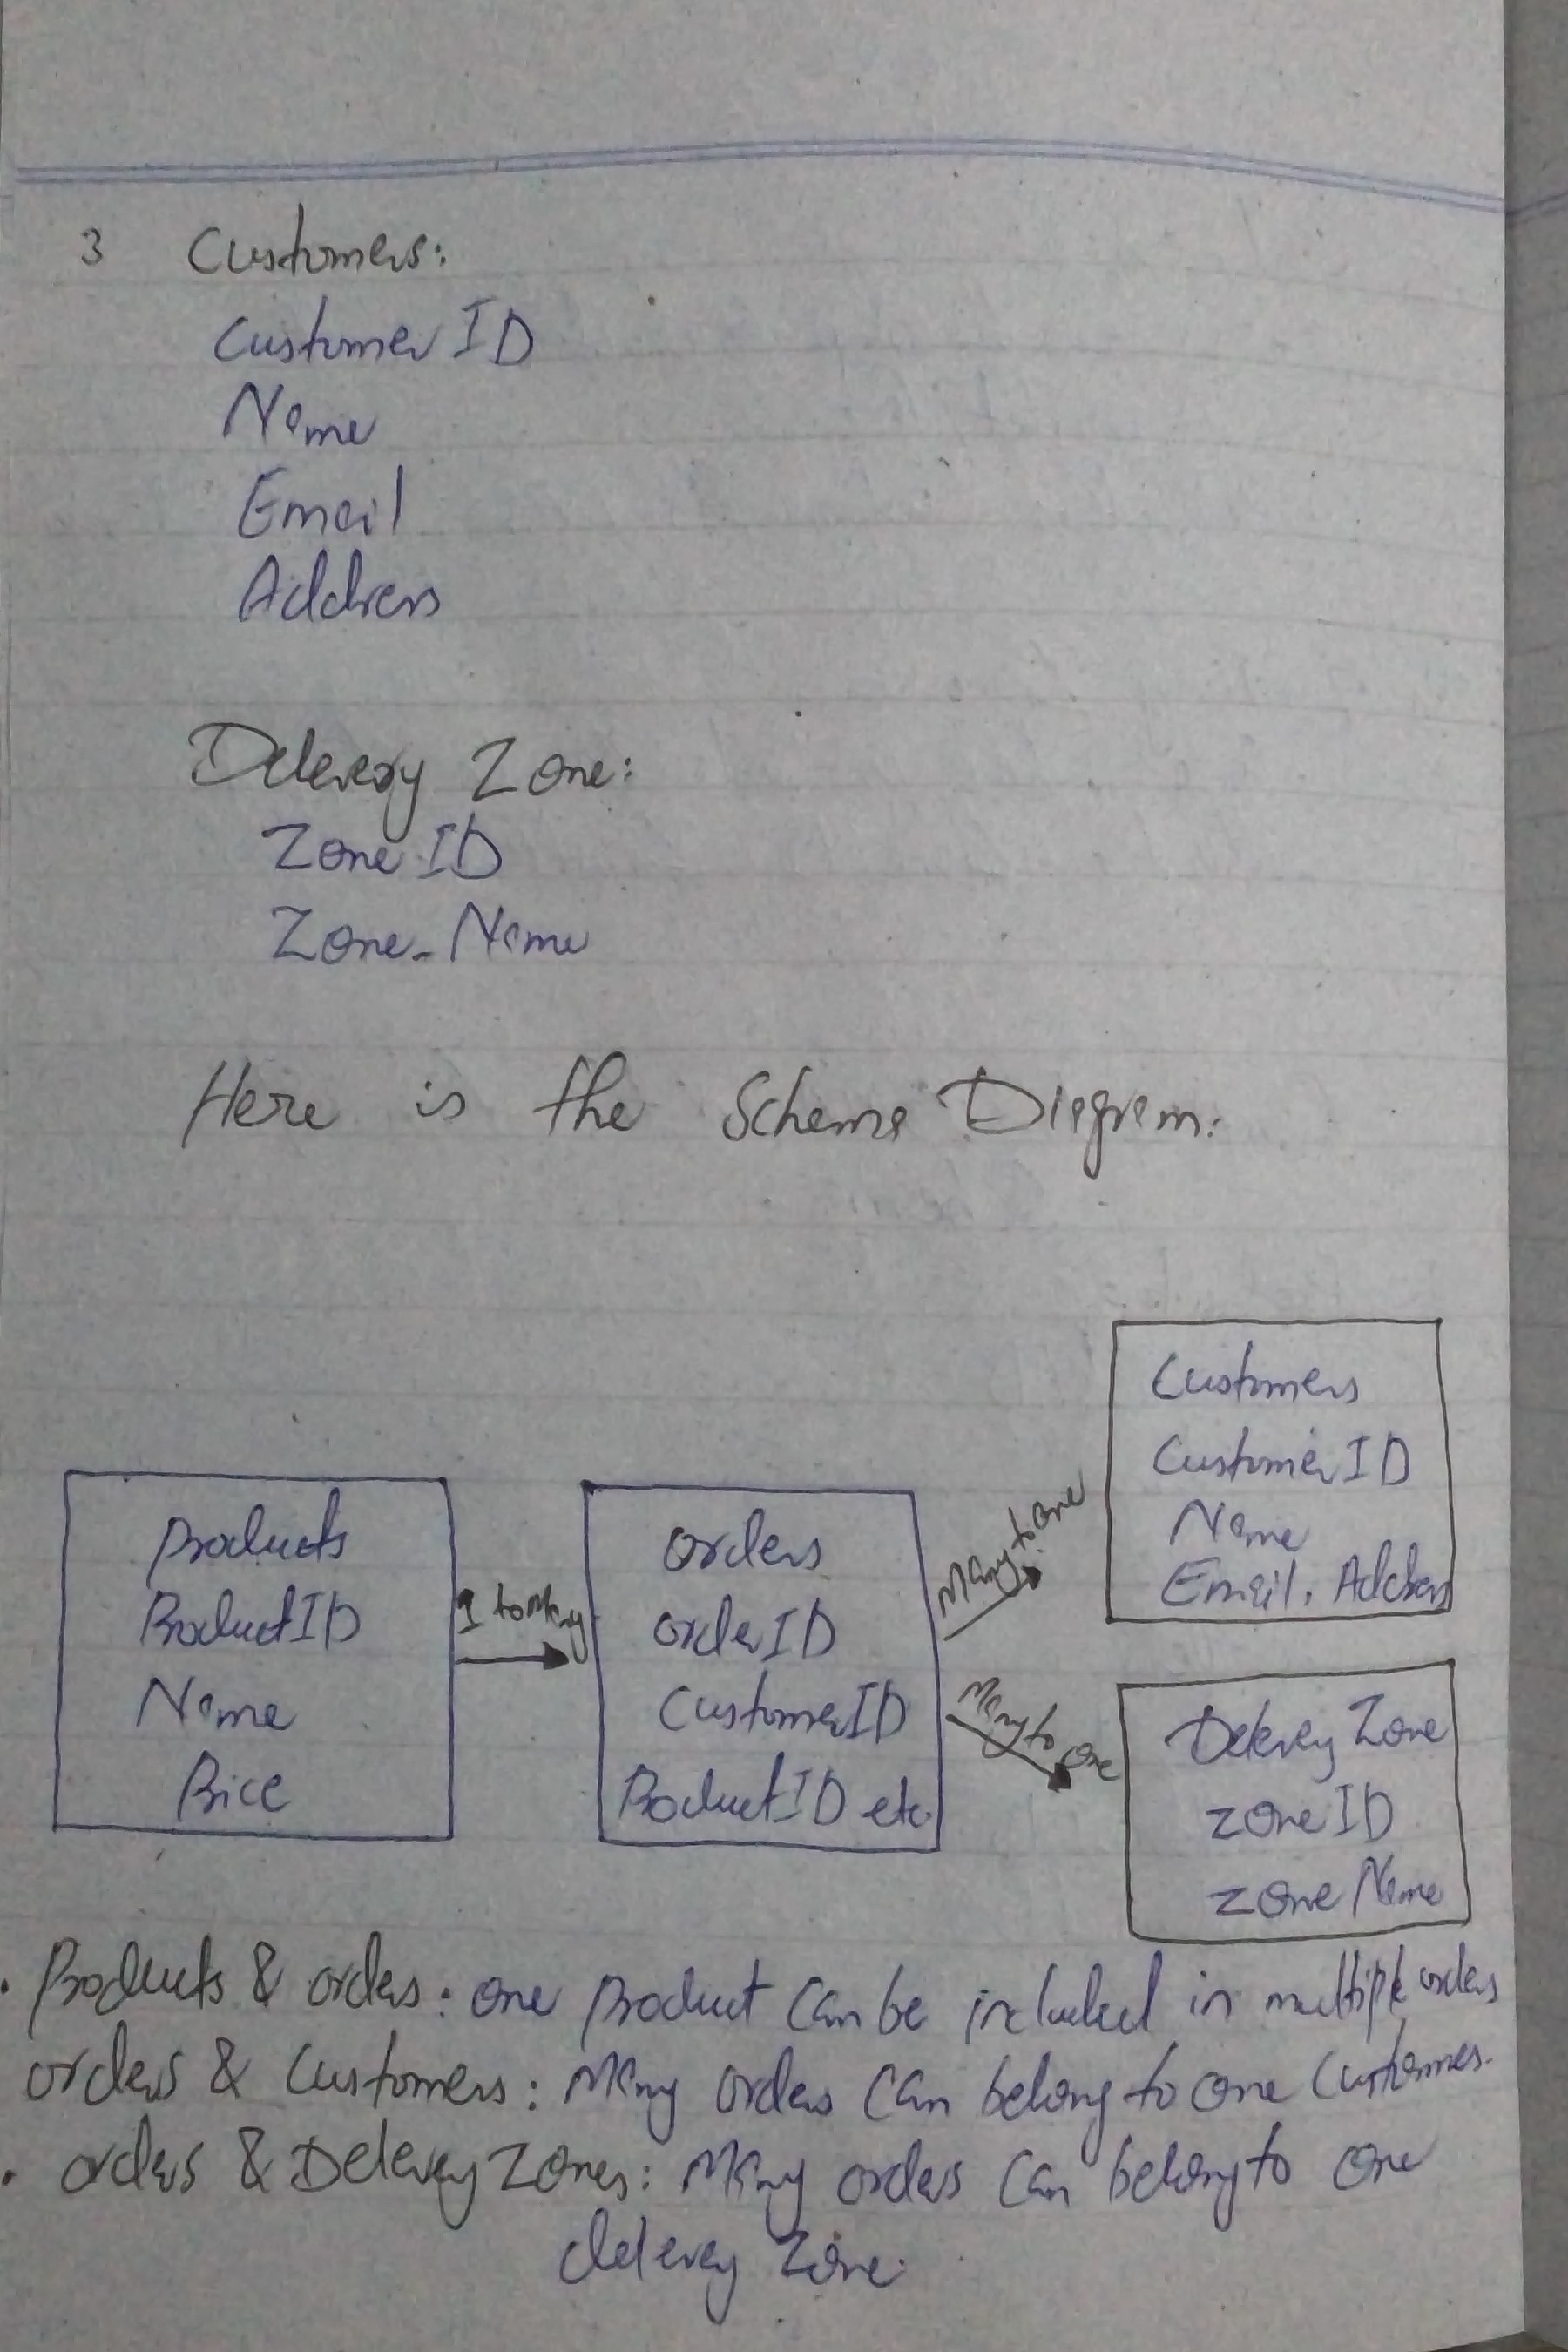 3 Customers:
Customer ID
Name
Email
Address
Delevery Zone:
Zone ID
Zone_Name
Here is the Schema Diagram:
Customers
CustomerID
Name
Email, Address
Products
ProductID
Name
Price
1 to Many
Orders
OrderID
CustomerID
ProductID etc.
Many to one
Many to one
Delevey Zone
zone ID
zone Name
. Products & orders : one Product Can be included in multiple orders
orders & Customers : Many orders Can belong to one Customers.
. orders & Delevey Zones : Many orders Can belong to one
delevey Zone.